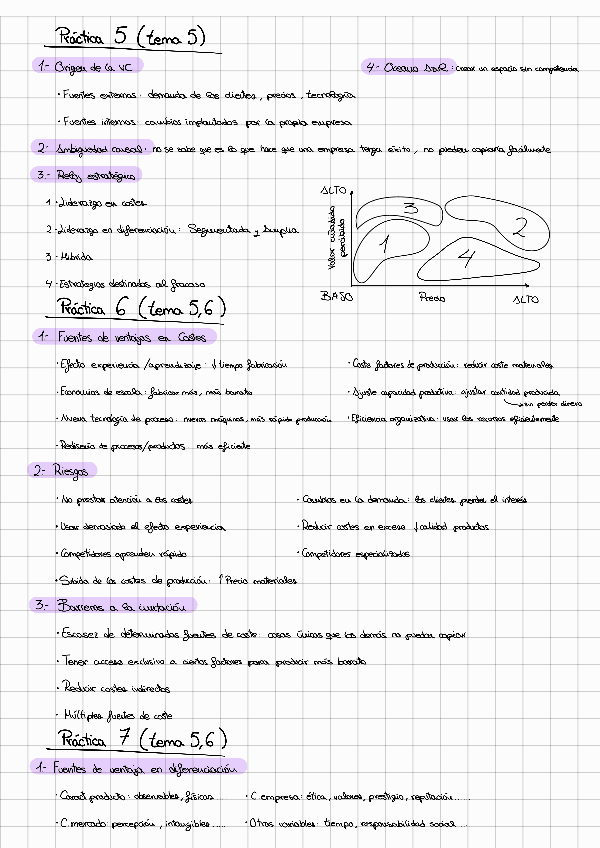 Práctica 5 (tema 5)
1- Origen de la VC
· Fuentes externas: demanda de los clientes, precios, tecnología
· Fuentes internas: cambios implantados por la propia empresa
2- Ambigüedad causal: no se sabe que es lo que hace que una empresa tenga éxito, no pueden copiarla facilmente
3.- Reloj estratégico
1 · Liderazgo en costes
2 · Liderazgo en diferenciación: Segmentada y Amplia
3 · Híbrida
4 · Estrategias destinadas al fracaso
4- Oceano Azul: crear un espacio sin competencia
ALTO
Valor añadido percibido
3
2
1
4
BAJO Precio ALTO
Práctica 6 (tema 5,6)
1- Fuentes de ventajas en Costes
· Efecto experiencia /aprendizaje: ↓ tiempo fabricación
· Economías de escala: fabricar más, más barato
· Nueva tecnología de proceso: nuevas máquinas, más rápida producción
· Rediseño de procesos/productos: más eficiente
· Coste factores de producción: reducir coste materiales
· Ajuste capacidad productiva: ajustar cantidad producida
sin perder dinero
· Eficiencia organizativa: usar los recursos eficientemente
2- Riesgos
· No prestar atención a los costes
· Usar demasiado el efecto experiencia
· Competidores aprenden rápido
· Subida de los costes de producción: ↑ Precio materiales
· Cambios en la demanda: los clientes pierden el interés
· Reducir costes en exceso ↓ calidad productos
· Competidores especializados
3.- Barreras a la imitación
· Escasez de determinadas fuentes de coste: cosas únicas que los demás no pueden copiar
· Tener acceso exclusivo a ciertos factores para producir más barato
· Reducir costes indirectos
· Múltiples fuentes de coste
Práctica 7 (tema 5,6)
1- Fuentes de ventaja en diferenciación
· Caract producto: observables, físicas...
· C empresa: ética, valores, prestigio, reputación.....
· C. mercado: percepción, intangibles.....
· Otras variables: tiempo, responsabilidad social....